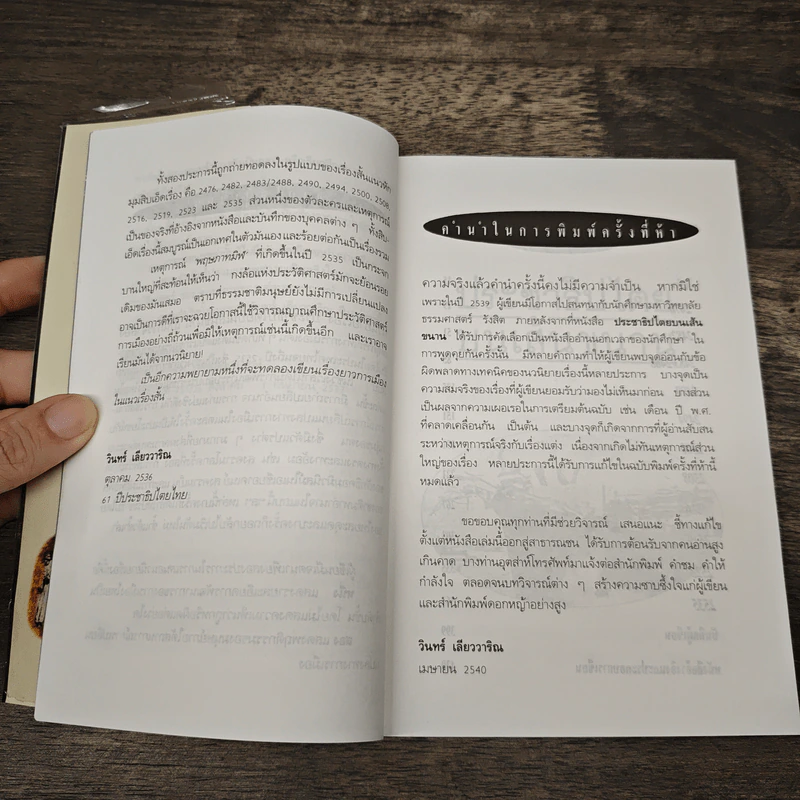 ทั้งสองประการนี้ถูกถ่ายทอดลงในรูปแบบของเรื่องสั้นแนวหัก
มุมสิบเอ็ดเรื่อง คือ 2476, 2482, 2483/2488, 2490, 2494, 2500, 2508,
2516, 2519, 2523 และ 2535 ส่วนหนึ่งของตัวละครและเหตุการณ์
เป็นของจริงที่อ้างอิงจากหนังสือและบันทึกของบุคคลต่าง ๆ ทั้งสิบ
เอ็ดเรื่องนี้สมบูรณ์เป็นเอกเทศในตัวมันเองและร้อยต่อกันเป็นเรื่องรวม
เหตุการณ์ พฤษภาทมิฬ ที่เกิดขึ้นในปี 2535 เป็นกระจก
บานใหญ่ที่สะท้อนให้เห็นว่า กงล้อแห่งประวัติศาสตร์มักจะย้อนรอย
เดิมของมันเสมอ ตราบที่ธรรมชาติมนุษย์ยังไม่มีการเปลี่ยนแปลง
อาจเป็นการดีที่เราจะฉวยโอกาสนี้ใช้วิจารณญาณศึกษาประวัติศาสตร์
การเมืองอย่างถี่ถ้วนเพื่อมิให้เหตุการณ์เช่นนี้เกิดขึ้นอีก และเราอาจ
เรียนมันได้จากนวนิยาย!
เป็นอีกความพยายามหนึ่งที่จะทดลองเขียนเรื่องยาวการเมือง
ในแนวเรื่องสั้น
วินทร์ เลียววาริณ
ตุลาคม 2536
61 ปีประชาธิปไตยไทย
คำนำในการพิมพ์ครั้งที่ห้า
ความจริงแล้วคำนำครั้งนี้คงไม่มีความจำเป็น หากมิใช่
เพราะในปี 2539 ผู้เขียนมีโอกาสไปสนทนากับนักศึกษามหาวิทยาลัย
ธรรมศาสตร์ รังสิต ภายหลังจากที่หนังสือ ประชาธิปไตยบนเส้น
ขนาน ได้รับการคัดเลือกเป็นหนังสืออ่านนอกเวลาของนักศึกษา ใน
การพูดคุยกันครั้งนั้น มีหลายคำถามทำให้ผู้เขียนพบจุดอ่อนกับข้อ
ผิดพลาดทางเทคนิคของนวนิยายเรื่องนี้หลายประการ บางจุดเป็น
ความสมจริงของเรื่องที่ผู้เขียนยอมรับว่ามองไม่เห็นมาก่อน บางส่วน
เป็นผลจากความเผอเรอในการเตรียมต้นฉบับ เช่น เดือน ปี พ.ศ.
ที่คลาดเคลื่อนกัน เป็นต้น และบางจุดก็เกิดจากการที่ผู้อ่านสับสน
ระหว่างเหตุการณ์จริงกับเรื่องแต่ง เนื่องจากเกิดไม่ทันเหตุการณ์ส่วน
ใหญ่ของเรื่อง หลายประการนี้ได้รับการแก้ไขในฉบับพิมพ์ครั้งที่ห้านี้
หมดแล้ว
ขอขอบคุณทุกท่านที่มีช่วยวิจารณ์ เสนอแนะ ชี้ทางแก้ไข
ตั้งแต่หนังสือเล่มนี้ออกสู่สาธารณชน ได้รับการต้อนรับจากคนอ่านสูง
เกินคาด บางท่านอุตส่าห์โทรศัพท์มาแจ้งต่อสำนักพิมพ์ คำชม คำให้
กำลังใจ ตลอดจนบทวิจารณ์ต่าง ๆ สร้างความซาบซึ้งใจแก่ผู้เขียน
และสำนักพิมพ์ดอกหญ้าอย่างสูง
วินทร์ เลียววาริณ
เมษายน 2540